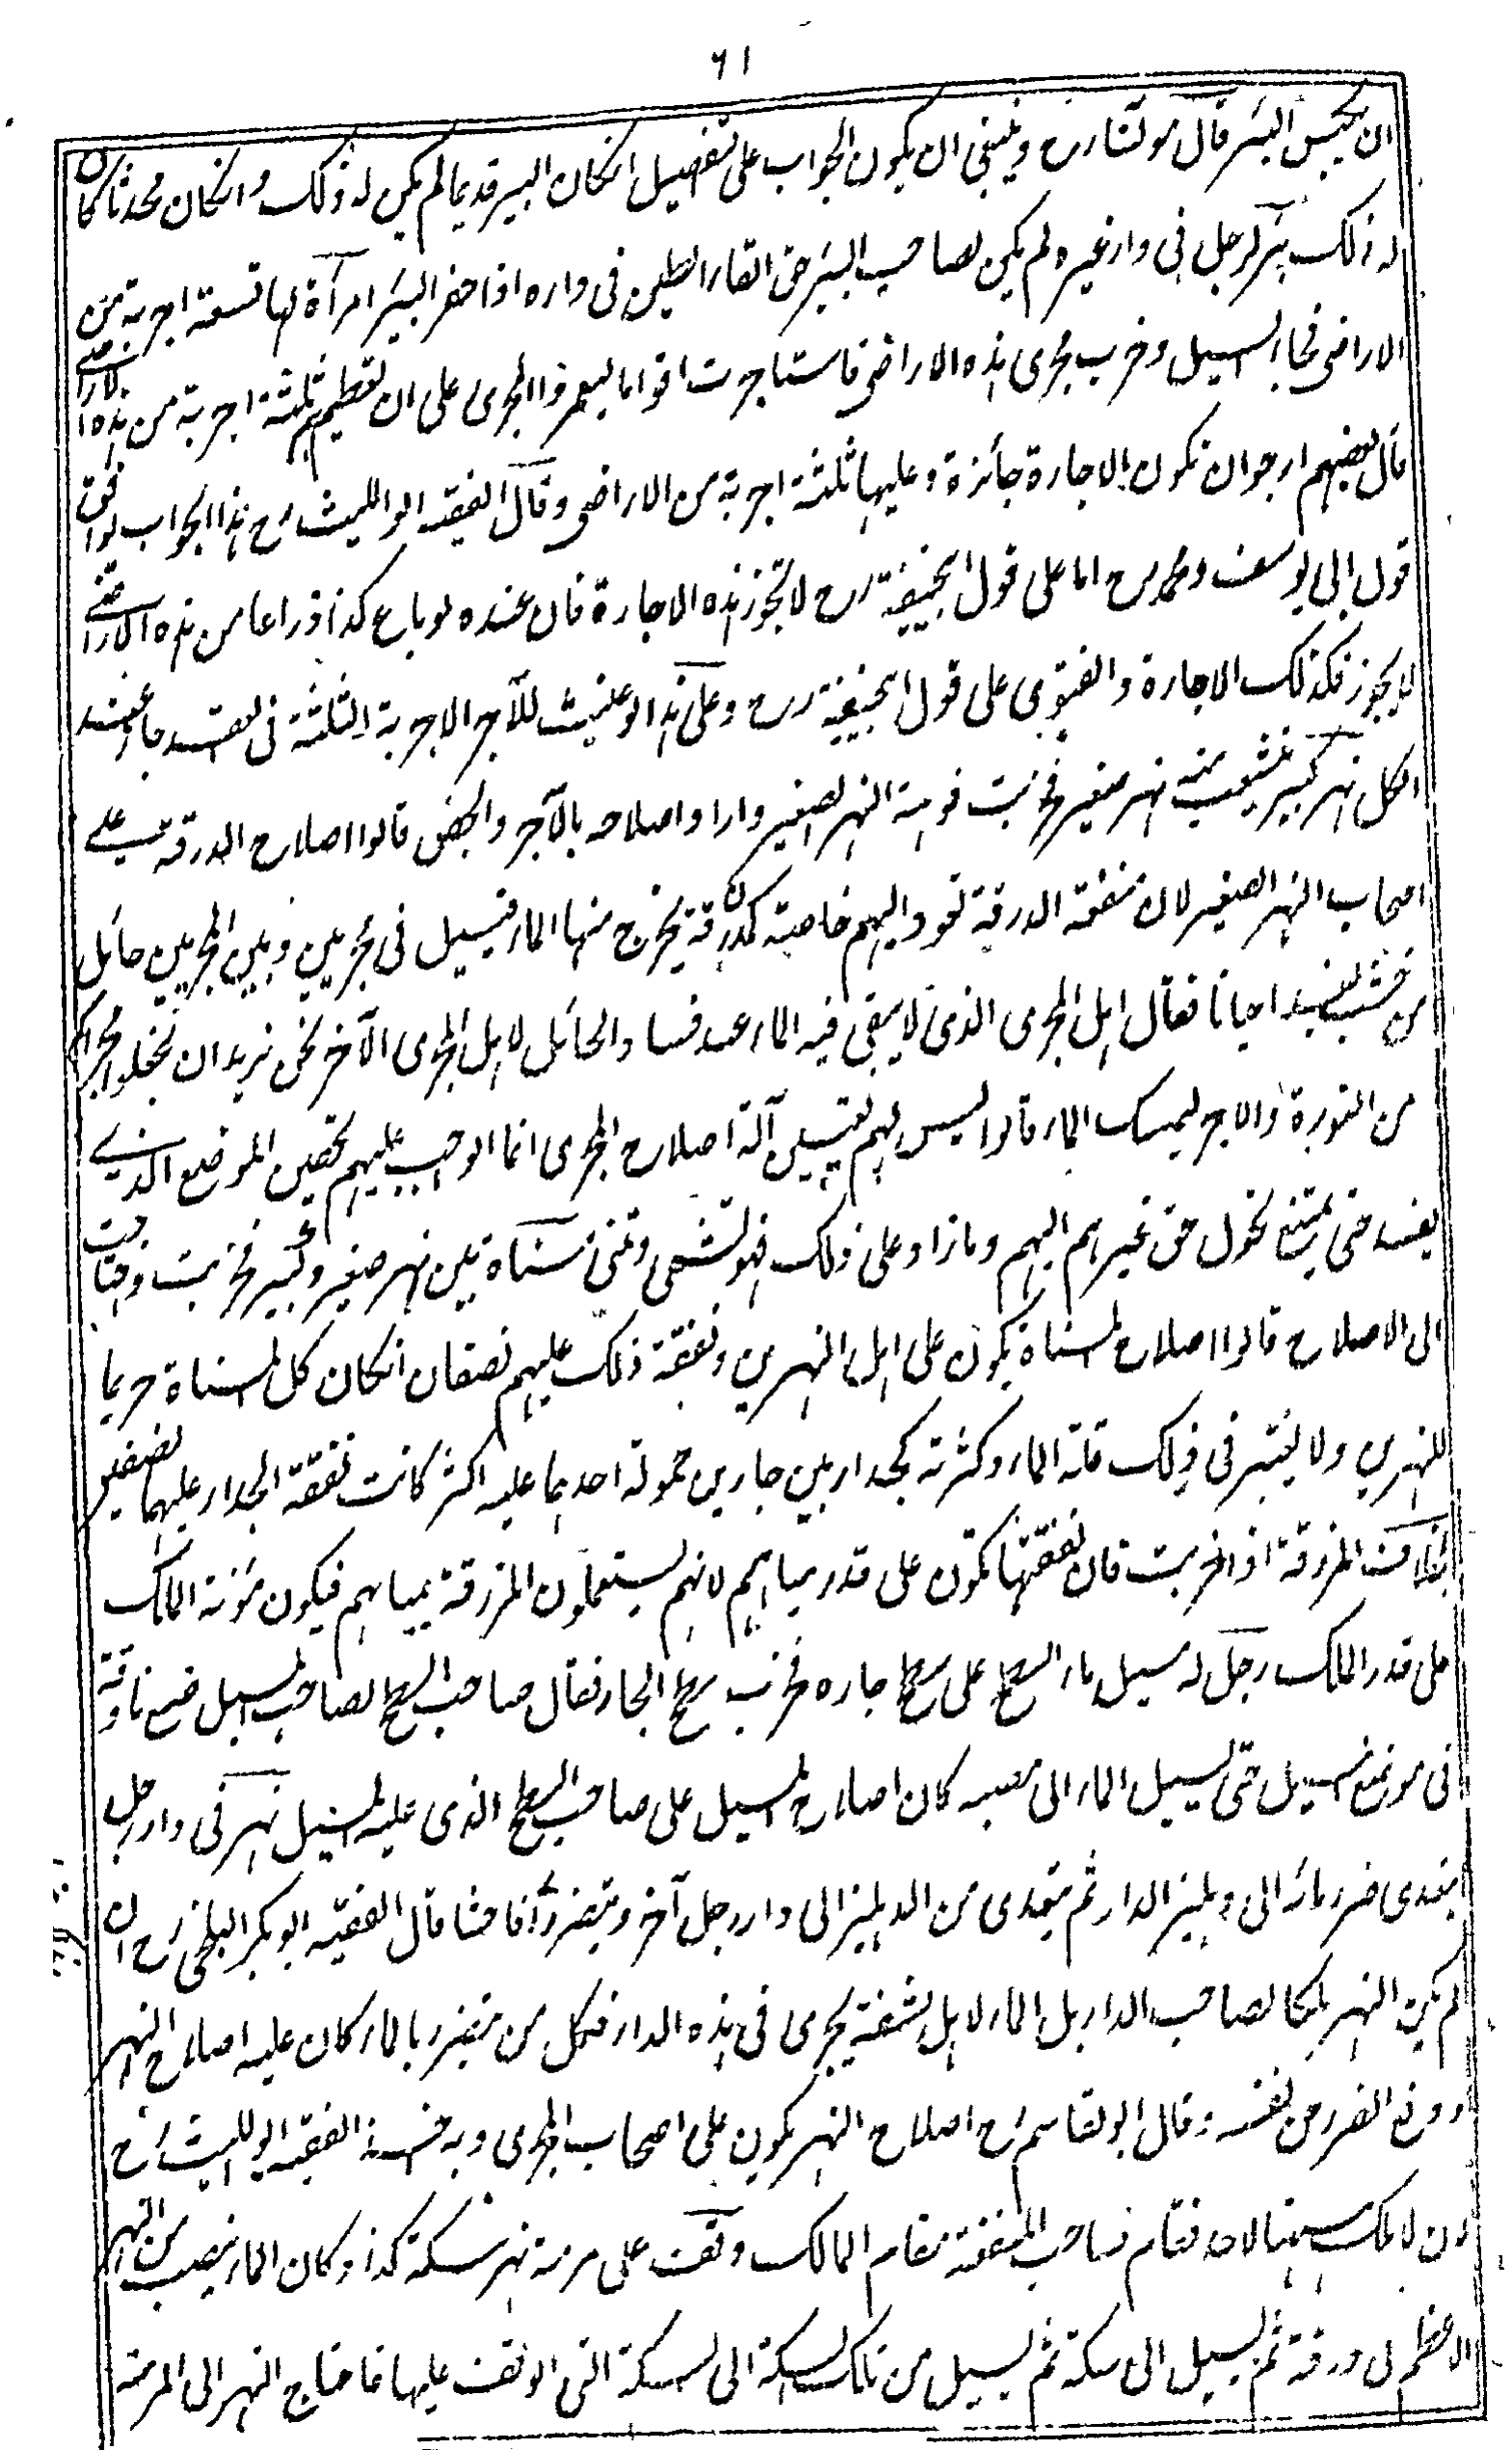 ٦١
ان يحبس البئر قال مولٰنا رح وينبغى ان يكون الجواب على تفصيل انكان البير قديما لم يكن له ذلك وانكان محدثا كان
له ذلك بئر لرجل فى دار غيره لم يكن لصاحب البئر حق القاء الطين فى داره اذا حفر البئر امرأة لها تسعة اجربة من
الاراضى فجاء السيل وخرب مجرى هذه الاراضى فاستاجرت اقواما ليعمروا المجرى على ان تعطيهم ثلثة اجربة من هذه الاراضى
قال بعضهم ارجو ان تكون الاجارة جائزة وعليها ثلثة اجربة من الاراضى وقال الفقيه ابو الليث رح هذا الجواب يوافق
قول ابى يوسف ومحمد رح اما على قول ابيحنيفة رح لا تجوز هذه الاجارة فان عنده لو باع كذا ذراعا من هذه الاراضى
لا يجوز فكذلك الاجارة والفتوى على قول ابيحنيفة رح وعلى هذا لو عينت للآجر الاجربة الثلثة فى العقد جاز عند
الكل نهر كبير ينشعب منه نهر صغير فخربت فوهة النهر الصغير وارادوا اصلاحه بالآجر والجص قالوا اصلاح الدرقة على
اصحاب النهر الصغير لان منفعة الدرقة تعود اليهم خاصة كدرقة يخرج منها الماء فيسيل فى مجريين وبين المجريين حائل
من خشب يفسد احيانا فقال اهل المجرى الذى لا يبقى فيه الماء عند فساد الحائل لاهل المجرى الآخر نحن نريد ان تجعلوا مجراكم
من النورة والآجر ليمسك الماء قالوا ليس لهم تعيين آلة اصلاح المجرى انما الواجب عليهم تحصين الموضع الذى
يفسد حتى يمتنع تحول حق غيرهم اليهم وما زاد على ذلك فهو تشهى وتمنى مسناة بين نهر صغير وكبير فخربت واحتاجت
الى الاصلاح قالوا اصلاح المسناة يكون على اهل النهرين ونفقة ذلك عليهم نصفان انكان كل المسناة حريما
للنهرين ولا يعتبر فى ذلك قلة الماء وكثرته كجدار بين جارين حمولة احدهما عليه اكثر كانت نفقة الجدار عليهما نصفين
بخلاف المزرقة اذا خربت فان نفقتها تكون على قدر مياههم لانهم يستعملون المزرقة بمياههم فيكون مؤنة الملك
على قدر الملك رجل له مسيل ماء السطح على سطح جاره فخرب سطح الجار فقال صاحب السطح لصاحب المسيل ضع ناوقة
فى موضع المسيل حتى يسيل الماء الى مصبه كان اصلاح المسيل على صاحب السطح الذى عليه المسيل نهر فى دار رجل
يتعدى ضرر مائه الى دهليز الدار ثم يتعدى من الدهليز الى دار رجل آخر ويتضرر ضررا فاحشا قال الفقيه ابو بكر البلخى رح ان
لم يكن النهر ملكا لصاحب الدار بل الماء لاهل الشفة يجرى فى هذه الدار فكل من يتضرر بالماء كان عليه اصلاح النهر
ودفع الضرر عن نفسه وقال ابو القاسم رح اصلاح النهر يكون على اصحاب المجرى وبه اخذ الفقيه ابو الليث رح
لان لا ملك لاحد فقام صاحب المنفعة مقام المالك وقف على مرمة نهر سكة كذا وكان الماء ينصب من النهر
الاعظم الى ورقة ثم يسيل الى سكة ثم يسيل من تلك السكة الى السكة التى الوقف عليها فاحتاج النهر الى المرمة